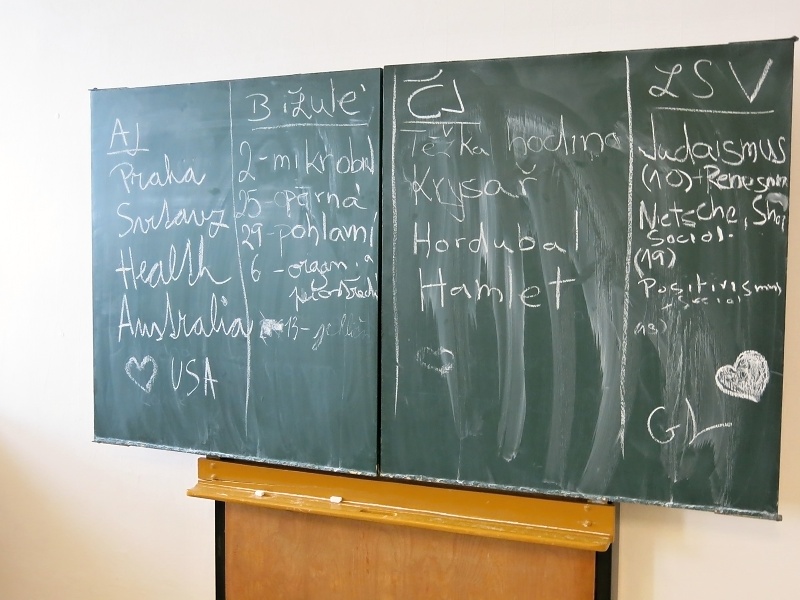 AJ
Praha
Svitavy
Health
Australia
USA
Bižule
2-mikrobi
25-opárná
29-pohlaví
6 - organ. a
13-
ČJ
Těžká hodina
Krysař
Hordubal
Hamlet
ZSV
Judaismus
(10)+Renesan
Nietsche, Sho
Sociol.
(19)
Positivismus
sociol
13)
GL